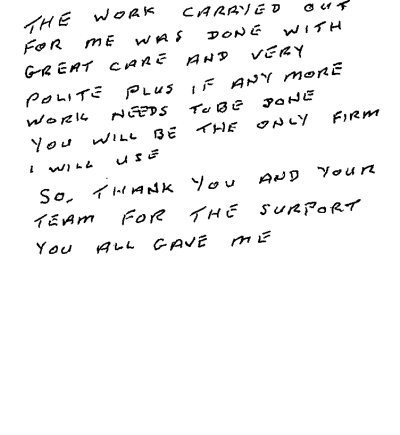 THE WORK CARRYED OUT
FOR ME WAS DONE WITH
GREAT CARE AND VERY
POLITE PLUS IF ANY MORE
WORK NEEDS TO BE DONE
YOU WILL BE THE ONLY FIRM
I WILL USE
SO, THANK YOU AND YOUR
TEAM FOR THE SUPPORT
YOU ALL GAVE ME